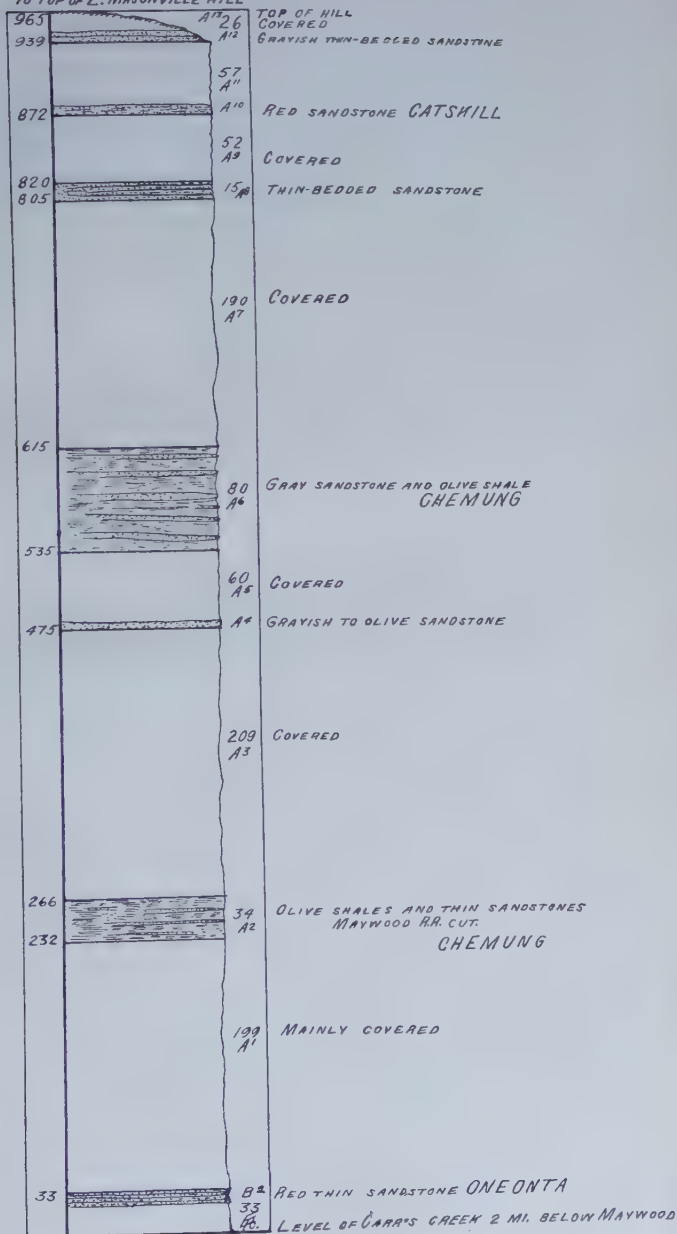 TO TOP OF E. MASONVILLE HILL
965 A13 26 TOP OF HILL
COVERED
939 A12 GRAYISH THIN-BEDDED SANDSTONE
57
A11
872 A10 RED SANDSTONE CATSKILL
52
A9 COVERED
820
805 15 A8 THIN-BEDDED SANDSTONE
190 COVERED
A7
615
80 GRAY SANDSTONE AND OLIVE SHALE
A6 CHEMUNG
535
60 COVERED
A5
475 A4 GRAYISH TO OLIVE SANDSTONE
209 COVERED
A3
266
34 OLIVE SHALES AND THIN SANDSTONES
A2 MAYWOOD R.R. CUT.
232 CHEMUNG
199 MAINLY COVERED
A1
33 B2 RED THIN SANDSTONE ONEONTA
33
LEVEL OF CARR'S CREEK 2 MI. BELOW MAYWOOD